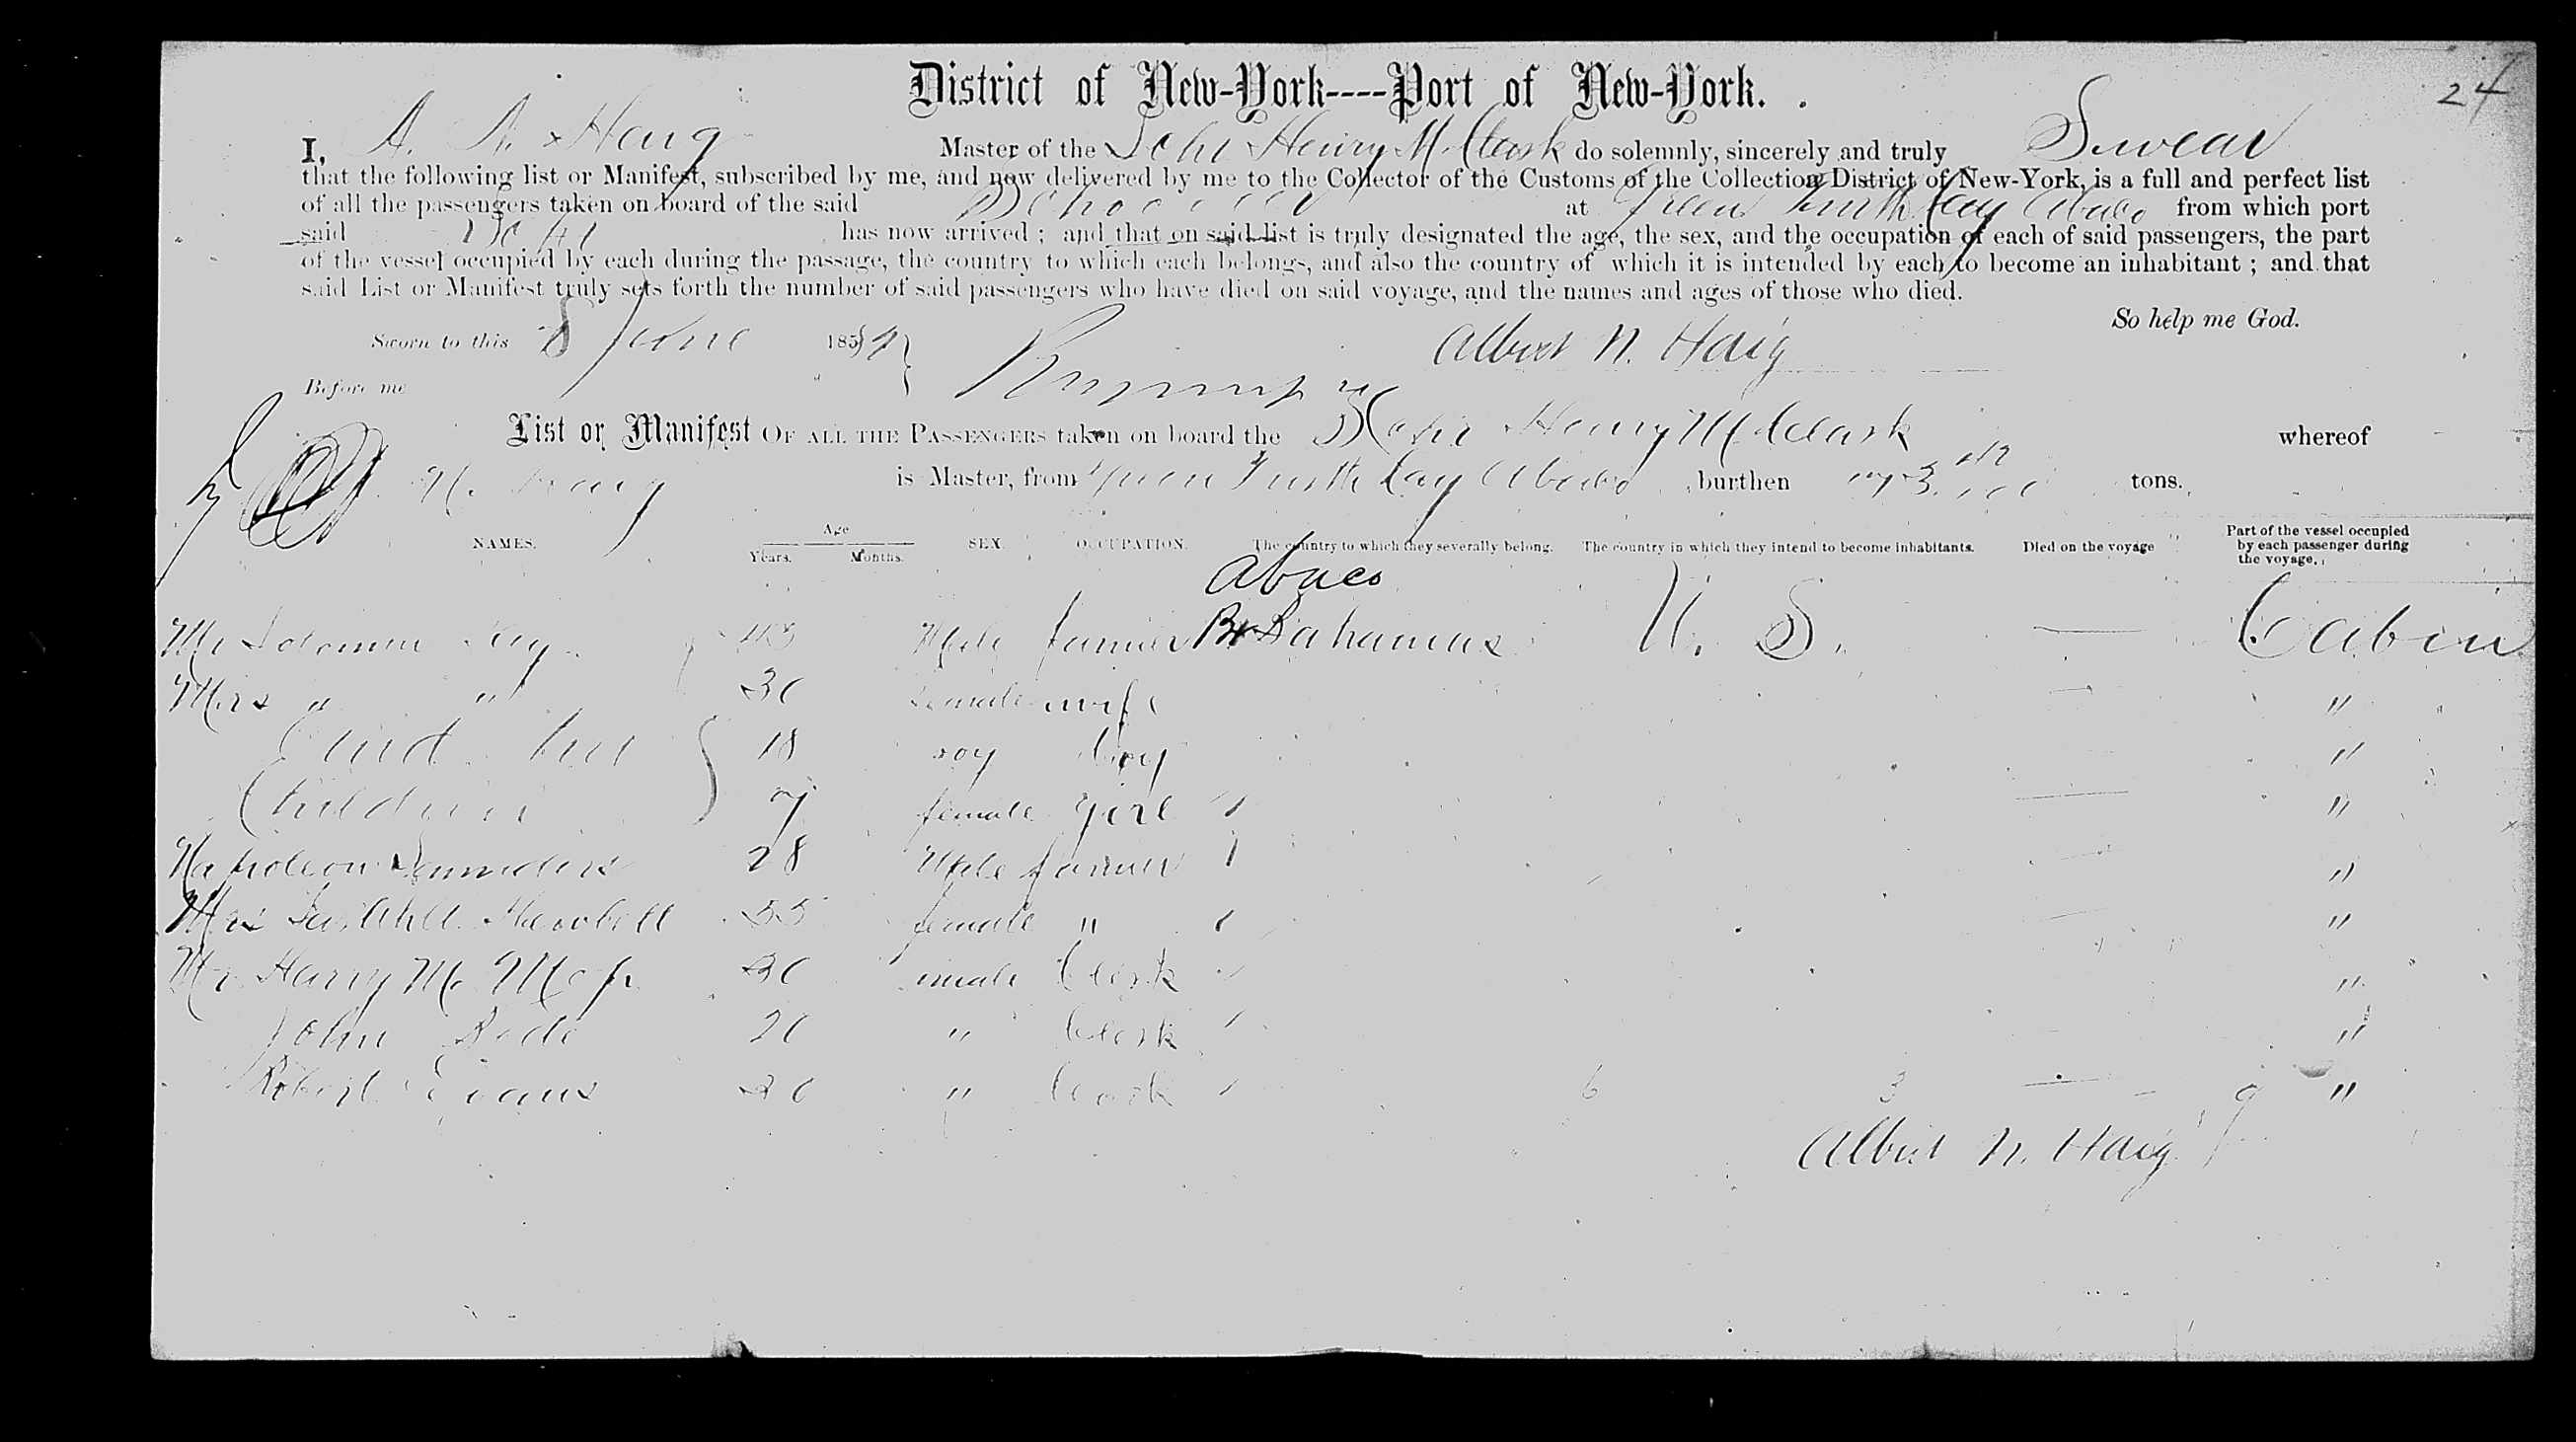 24
District of New-York----Port of New-York.
I, A. N. Haig Master of the Schr Henry M. Clark do solemnly, sincerely and truly Swear
that the following list or Manifest, subscribed by me, and now delivered by me to the Collector of the Customs of the Collection District of New-York, is a full and perfect list
of all the passengers taken on board of the said Schooner at Green Turtle Cay Abaco from which port
said has now arrived ; and that on said list is truly designated the age, the sex, and the occupation of each of said passengers, the part
of the vessel occupied by each during the passage, the country to which each belongs, and also the country of which it is intended by each to become an inhabitant ; and that
said List or Manifest truly sets forth the number of said passengers who have died on said voyage, and the names and ages of those who died.
So help me God.
Sworn to this 8 June 185 Albert N. Haig
Before me
List or Manifest OF ALL THE PASSENGERS taken on board the Henry M Clark whereof
N. Haig is Master, from Green Turtle Cay Abaco burthen tons.
NAMES. Age Years. Months. SEX. OCCUPATION. The country to which they severally belong. The country in which they intend to become inhabitants. Died on the voyage Part of the vessel occupied by each passenger during the voyage.
Abaco
Mr Solomon Male farmer Bahamas U. S. — Cabin
Mrs " " 30 female wife — "
and 18 boy boy "
Children 7 female girl " — "
Napoleon Saunders 28 Male farmer " — "
Mrs 55 female " " — "
Mr Harry M. 30 male Clerk " "
John 20 " Clerk " "
Robert Evans 30 " Clerk " 6 3 — 9 "
Albert N. Haig